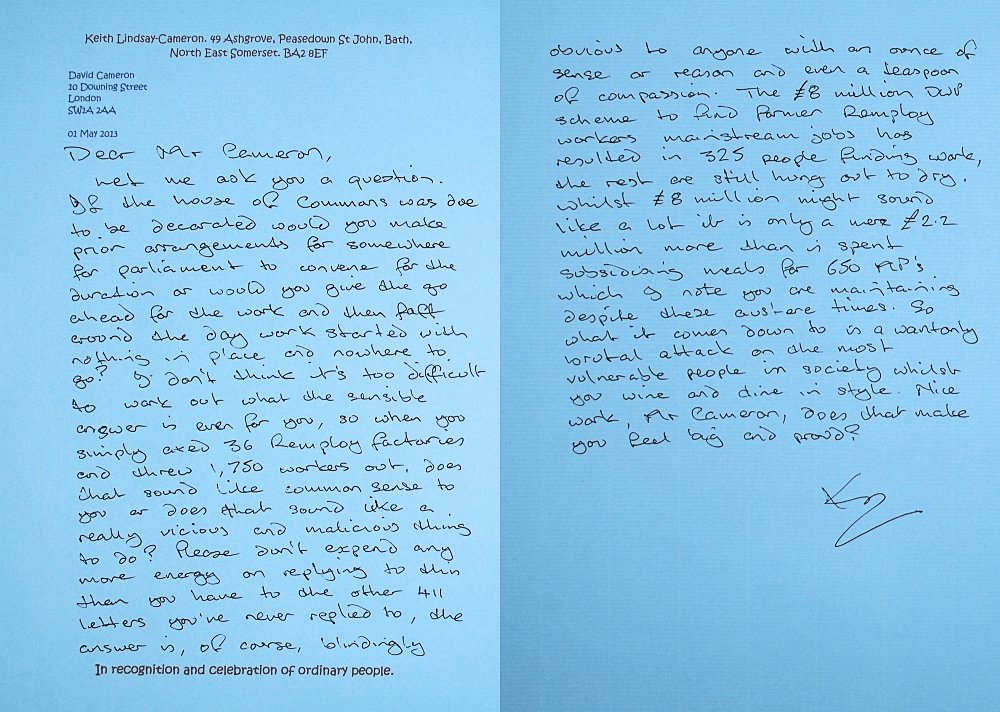 Keith Lindsay-Cameron. 49 Ashgrove, Peasedown St John, Bath,
North East Somerset. BA2 8EF
David Cameron
10 Downing Street
London
SW1A 2AA
01 May 2013
Dear Mr Cameron,
Let me ask you a question.
If the house of Commons was due
to be decorated would you make
prior arrangements for somewhere
for parliament to convene for the
duration or would you give the go
ahead for the work and then faff
around the day work started with
nothing in place and nowhere to
go? I don't think it's too difficult
to work out what the sensible
answer is even for you, so when you
simply axed 36 Remploy factories
and threw 1,750 workers out, does
that sound like common sense to
you or does that sound like a
really vicious and malicious thing
to do? Please don't expend any
more energy on replying to this
than you have to the other 411
letters you've never replied to, the
answer is, of course, blindingly
In recognition and celebration of ordinary people.
obvious to anyone with an ounce of
sense or reason and even a teaspoon
of compassion. The £8 million DWP
scheme to find former Remploy
workers mainstream jobs has
resulted in 325 people finding work,
the rest are still hung out to dry.
Whilst £8 million might sound
like a lot it is only a mere £2.2
million more than is spent
subsidising meals for 650 MP's
which I note you are maintaining
despite these austere times. So
what it comes down to is a wantonly
brutal attack on the most
vulnerable people in society whilst
you wine and dine in style. Nice
work, Mr Cameron, does that make
you feel big and proud?